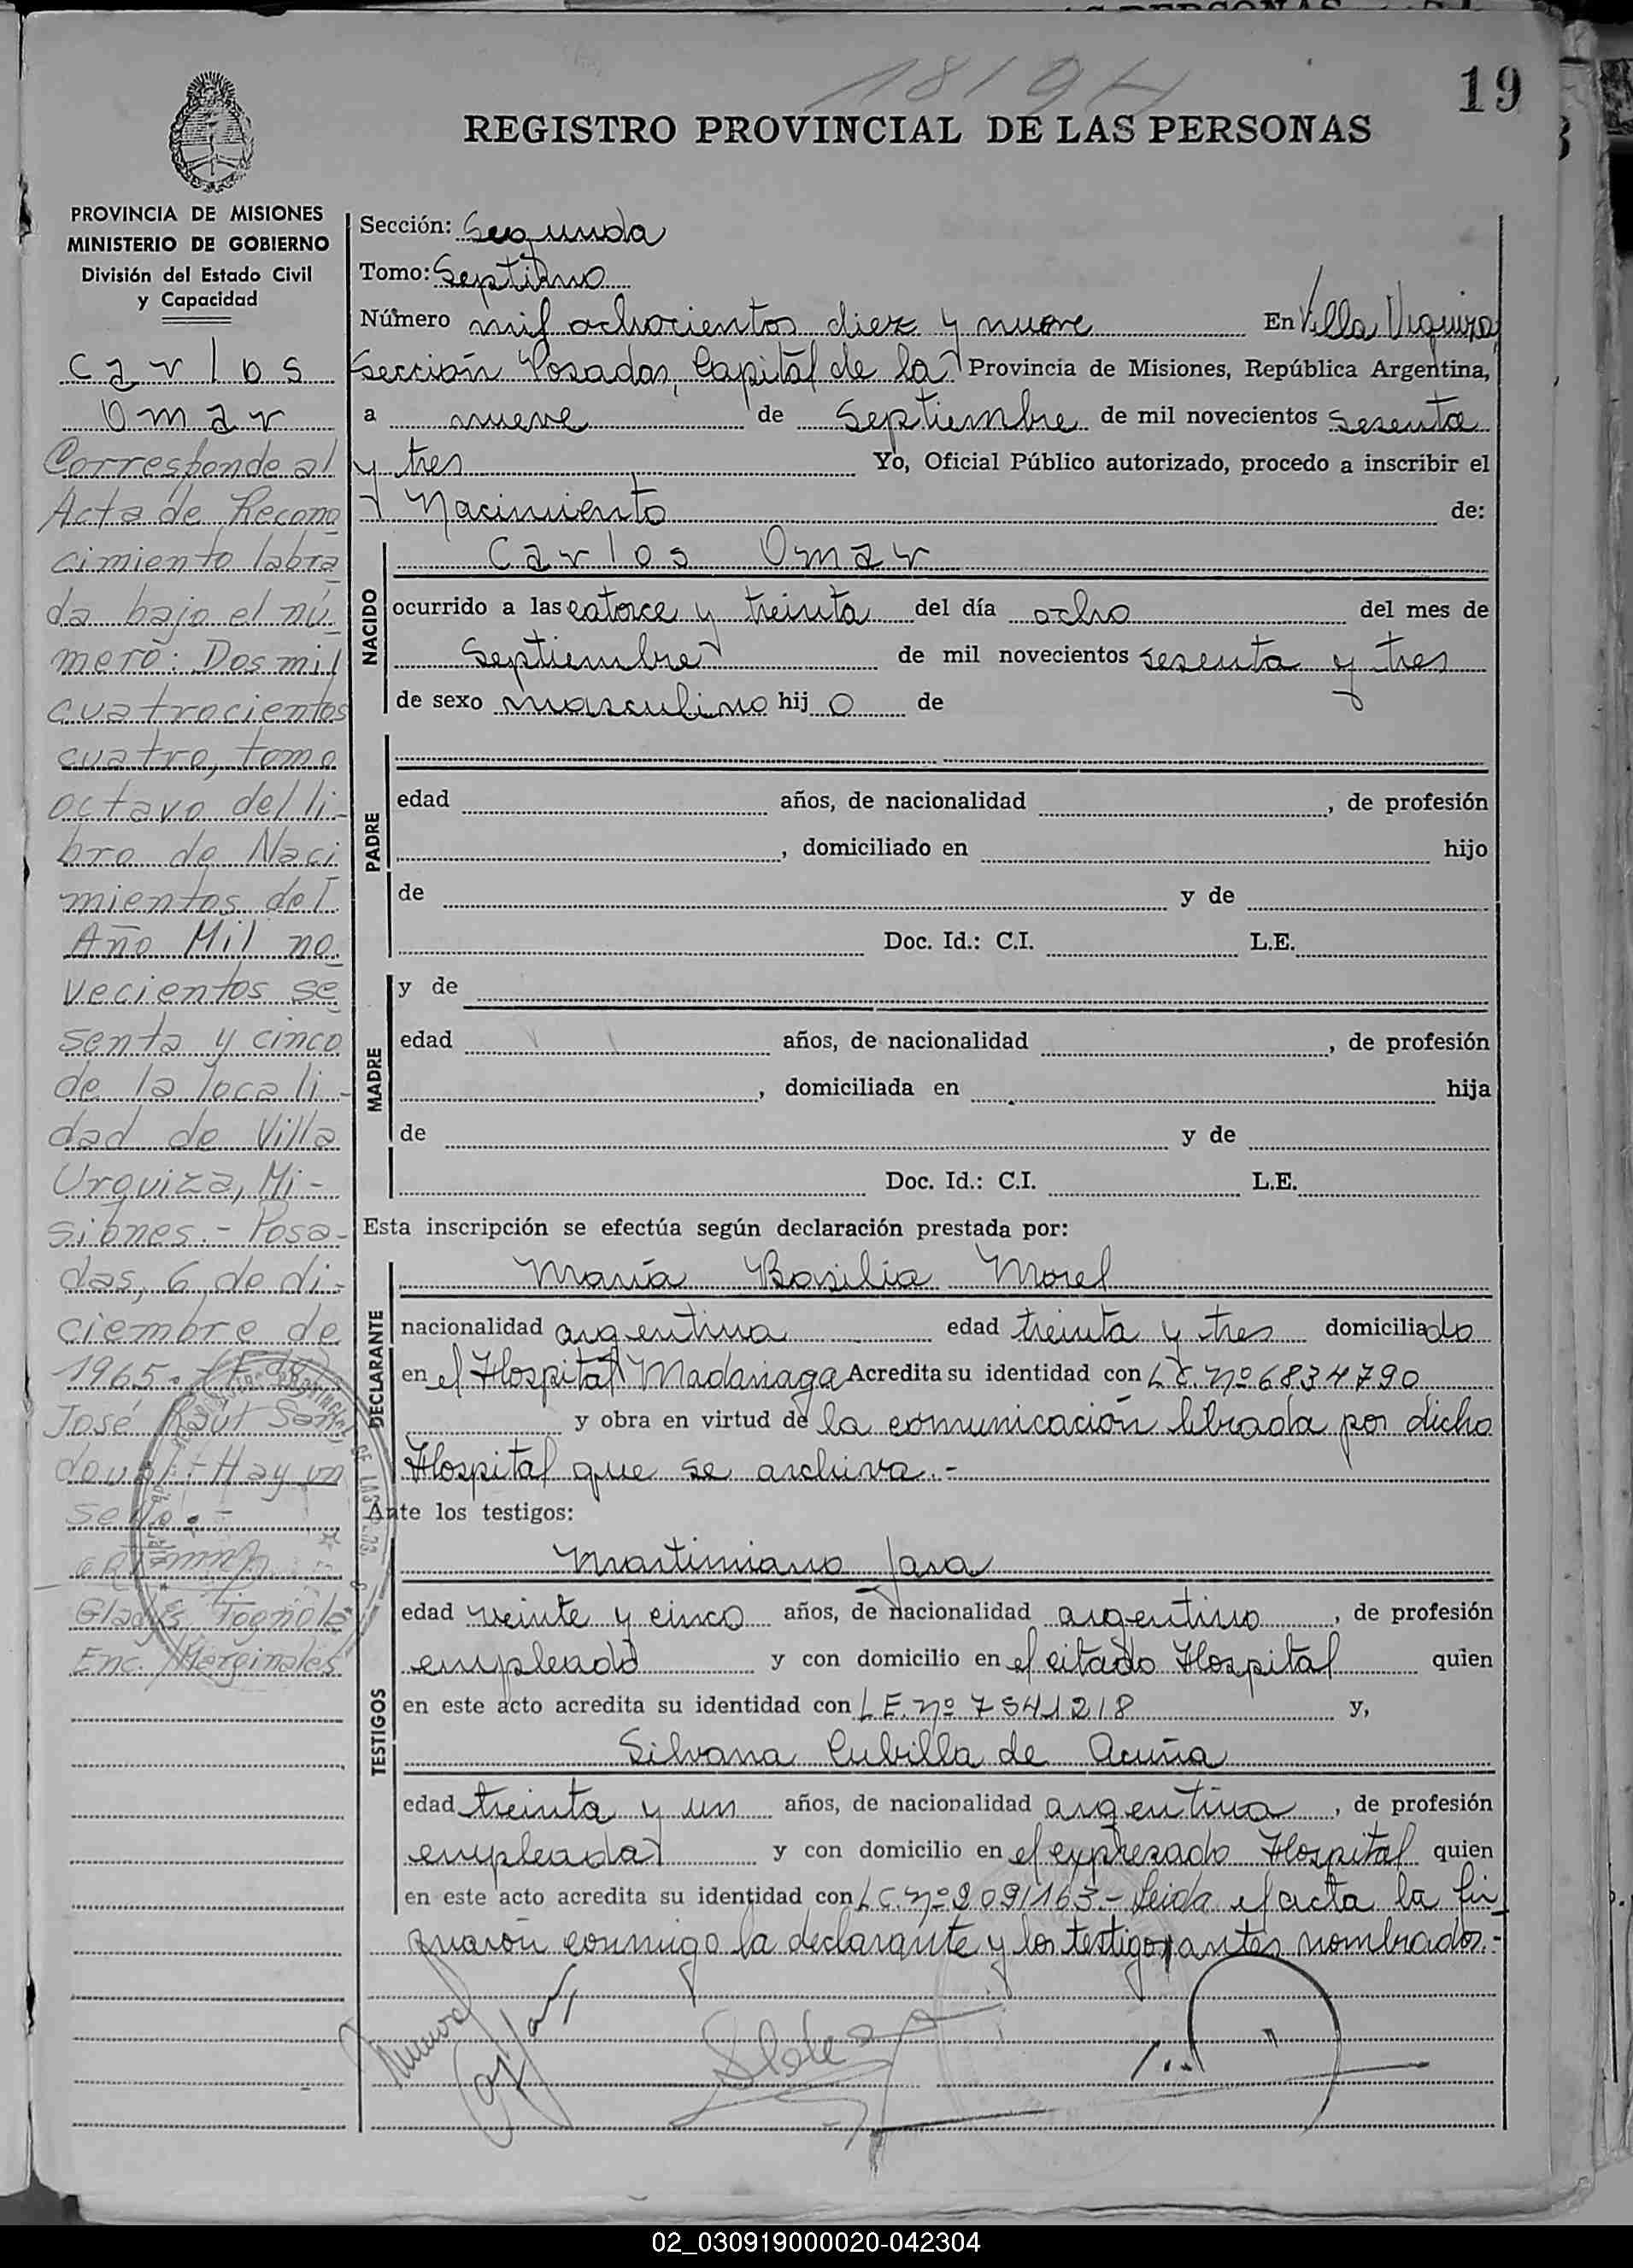 19
REGISTRO PROVINCIAL DE LAS PERSONAS
PROVINCIA DE MISIONES
MINISTERIO DE GOBIERNO
División del Estado Civil
y Capacidad
Carlos
Omar
Corresponde al
Acta de Recono
cimiento labra
da bajo el nú
mero: Dos mil
cuatrocientos
cuatro, tomo
octavo del li-
bro de Naci
mientos del
Año Mil no
vecientos se
senta y cinco
de la locali-
dad de Villa
Urquiza, Mi-
siones.- Posa-
das, 6 de di-
ciembre de
1965.- Fdo
José Raúl
Hay un
sello.-
Gladys
Enc. Marginales
Sección: Segunda
Tomo: Septimo
Número mil ochocientos diez y nueve En Villa Urquiza,
Sección Posadas, Capital de la Provincia de Misiones, República Argentina,
a nueve de Septiembre de mil novecientos sesenta
y tres Yo, Oficial Público autorizado, procedo a inscribir el
Nacimiento de:
NACIDO
Carlos Omar
ocurrido a las catorce y treinta del día ocho del mes de
Septiembre de mil novecientos sesenta y tres
de sexo masculino hij o de
PADRE
edad años, de nacionalidad , de profesión
, domiciliado en hijo
de y de
Doc. Id.: C.I. L.E.
MADRE
y de
edad años, de nacionalidad , de profesión
, domiciliada en hija
de y de
Doc. Id.: C.I. L.E.
Esta inscripción se efectúa según declaración prestada por:
DECLARANTE
María Basilia Morel
nacionalidad argentina edad treinta y tres domiciliada
en el Hospital Madariaga Acredita su identidad con L.C. nº 6834790
y obra en virtud de la comunicación librada por dicho
Hospital que se archiva.-
Ante los testigos:
TESTIGOS
Martiniano Jara
edad veinte y cinco años, de nacionalidad argentino, de profesión
empleado y con domicilio en el citado Hospital quien
en este acto acredita su identidad con L.E. nº 7541218 y,
Silvana Cubilla de Acuña
edad treinta y un años, de nacionalidad argentina, de profesión
empleada y con domicilio en el expresado Hospital quien
en este acto acredita su identidad con L.C. nº 2091163.- Leida el acta la fir
maron conmigo la declarante y los testigos antes nombrados.-
02_030919000020-042304